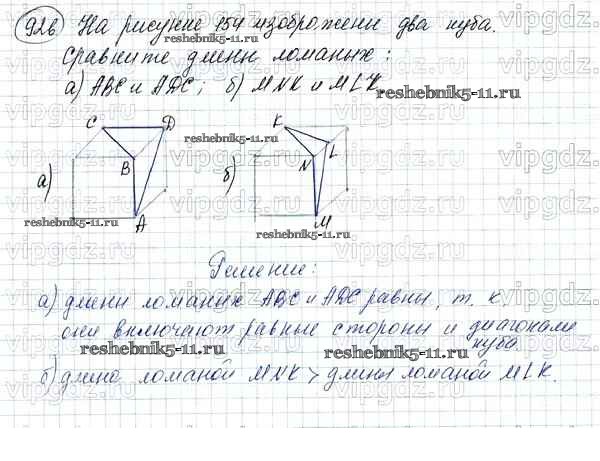 926 На рисунке 154 изображены два куба.
reshebnik5-11.ru
Сравните длины ломаных:
а) ABC и ADC; б) MNK и MLK
reshebnik5-11.ru
C D K
reshebnik5-11.ru
а) B б) N L
reshebnik5-11.ru A M
reshebnik5-11.ru
Решение:
а) длины ломаных ABC и ADC равны, т. к
они включают равные стороны и диагонали
reshebnik5-11.ru reshebnik5-11.ru куба
б) длина ломаной MNK > длины ломаной MLK.
vipgdz.ru